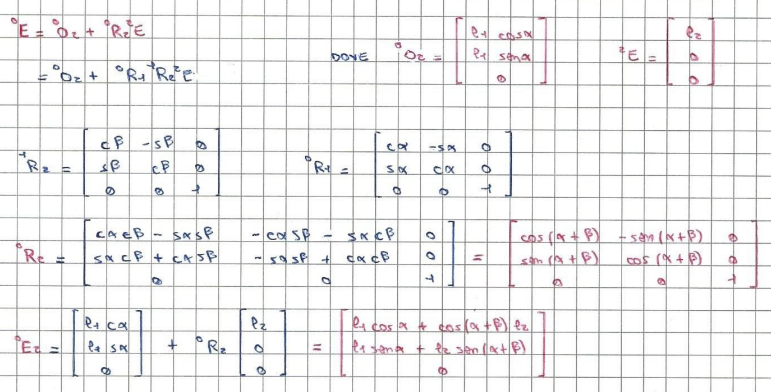 ⁰E = ⁰O₂ + ⁰R₂ ²E
= ⁰O₂ + ⁰R₁ ¹R₂ ²E
DOVE ⁰O₂ = [ l₁ cosα ; l₁ senα ; 0 ] ²E = [ l₂ ; 0 ; 0 ]
¹R₂ = [ cβ -sβ 0 ; sβ cβ 0 ; 0 0 1 ] ⁰R₁ = [ cα -sα 0 ; sα cα 0 ; 0 0 1 ]
⁰R₂ = [ cαcβ - sαsβ -cαsβ - sαcβ 0 ; sαcβ + cαsβ -sαsβ + cαcβ 0 ; 0 0 1 ] = [ cos(α+β) -sen(α+β) 0 ; sen(α+β) cos(α+β) 0 ; 0 0 1 ]
⁰E₂ = [ l₁ cα ; l₁ sα ; 0 ] + ⁰R₂ [ l₂ ; 0 ; 0 ] = [ l₁ cosα + cos(α+β) l₂ ; l₁ senα + l₂ sen(α+β) ; 0 ]